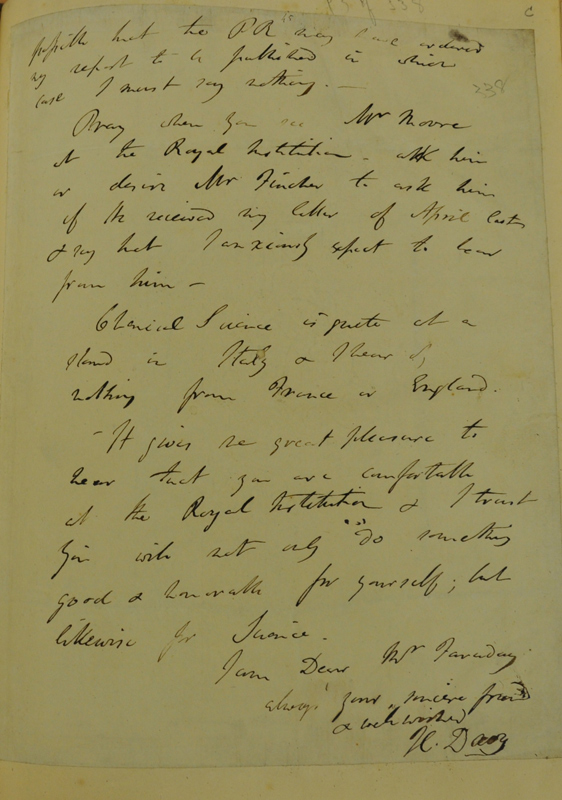 possible that the PR may have ordered
my report to be published in which
case I must say nothing. —
238
Pray when you see Mr Moore
at the Royal Institution - ask him
or desire Mr Fincher to ask him
if he received my letter of April last
& say that I anxiously expect to hear
from him —
Chemical Science is quite at a
stand in Italy & I hear of
nothing from France or England.
- It gives me great pleasure to
hear that you are comfortable
at the Royal Institution & I trust
you will not only do something
good & honorable for yourself; but
likewise for Science.
I am Dear Mr Faraday
always your sincere friend
& well wisher
H. Davy